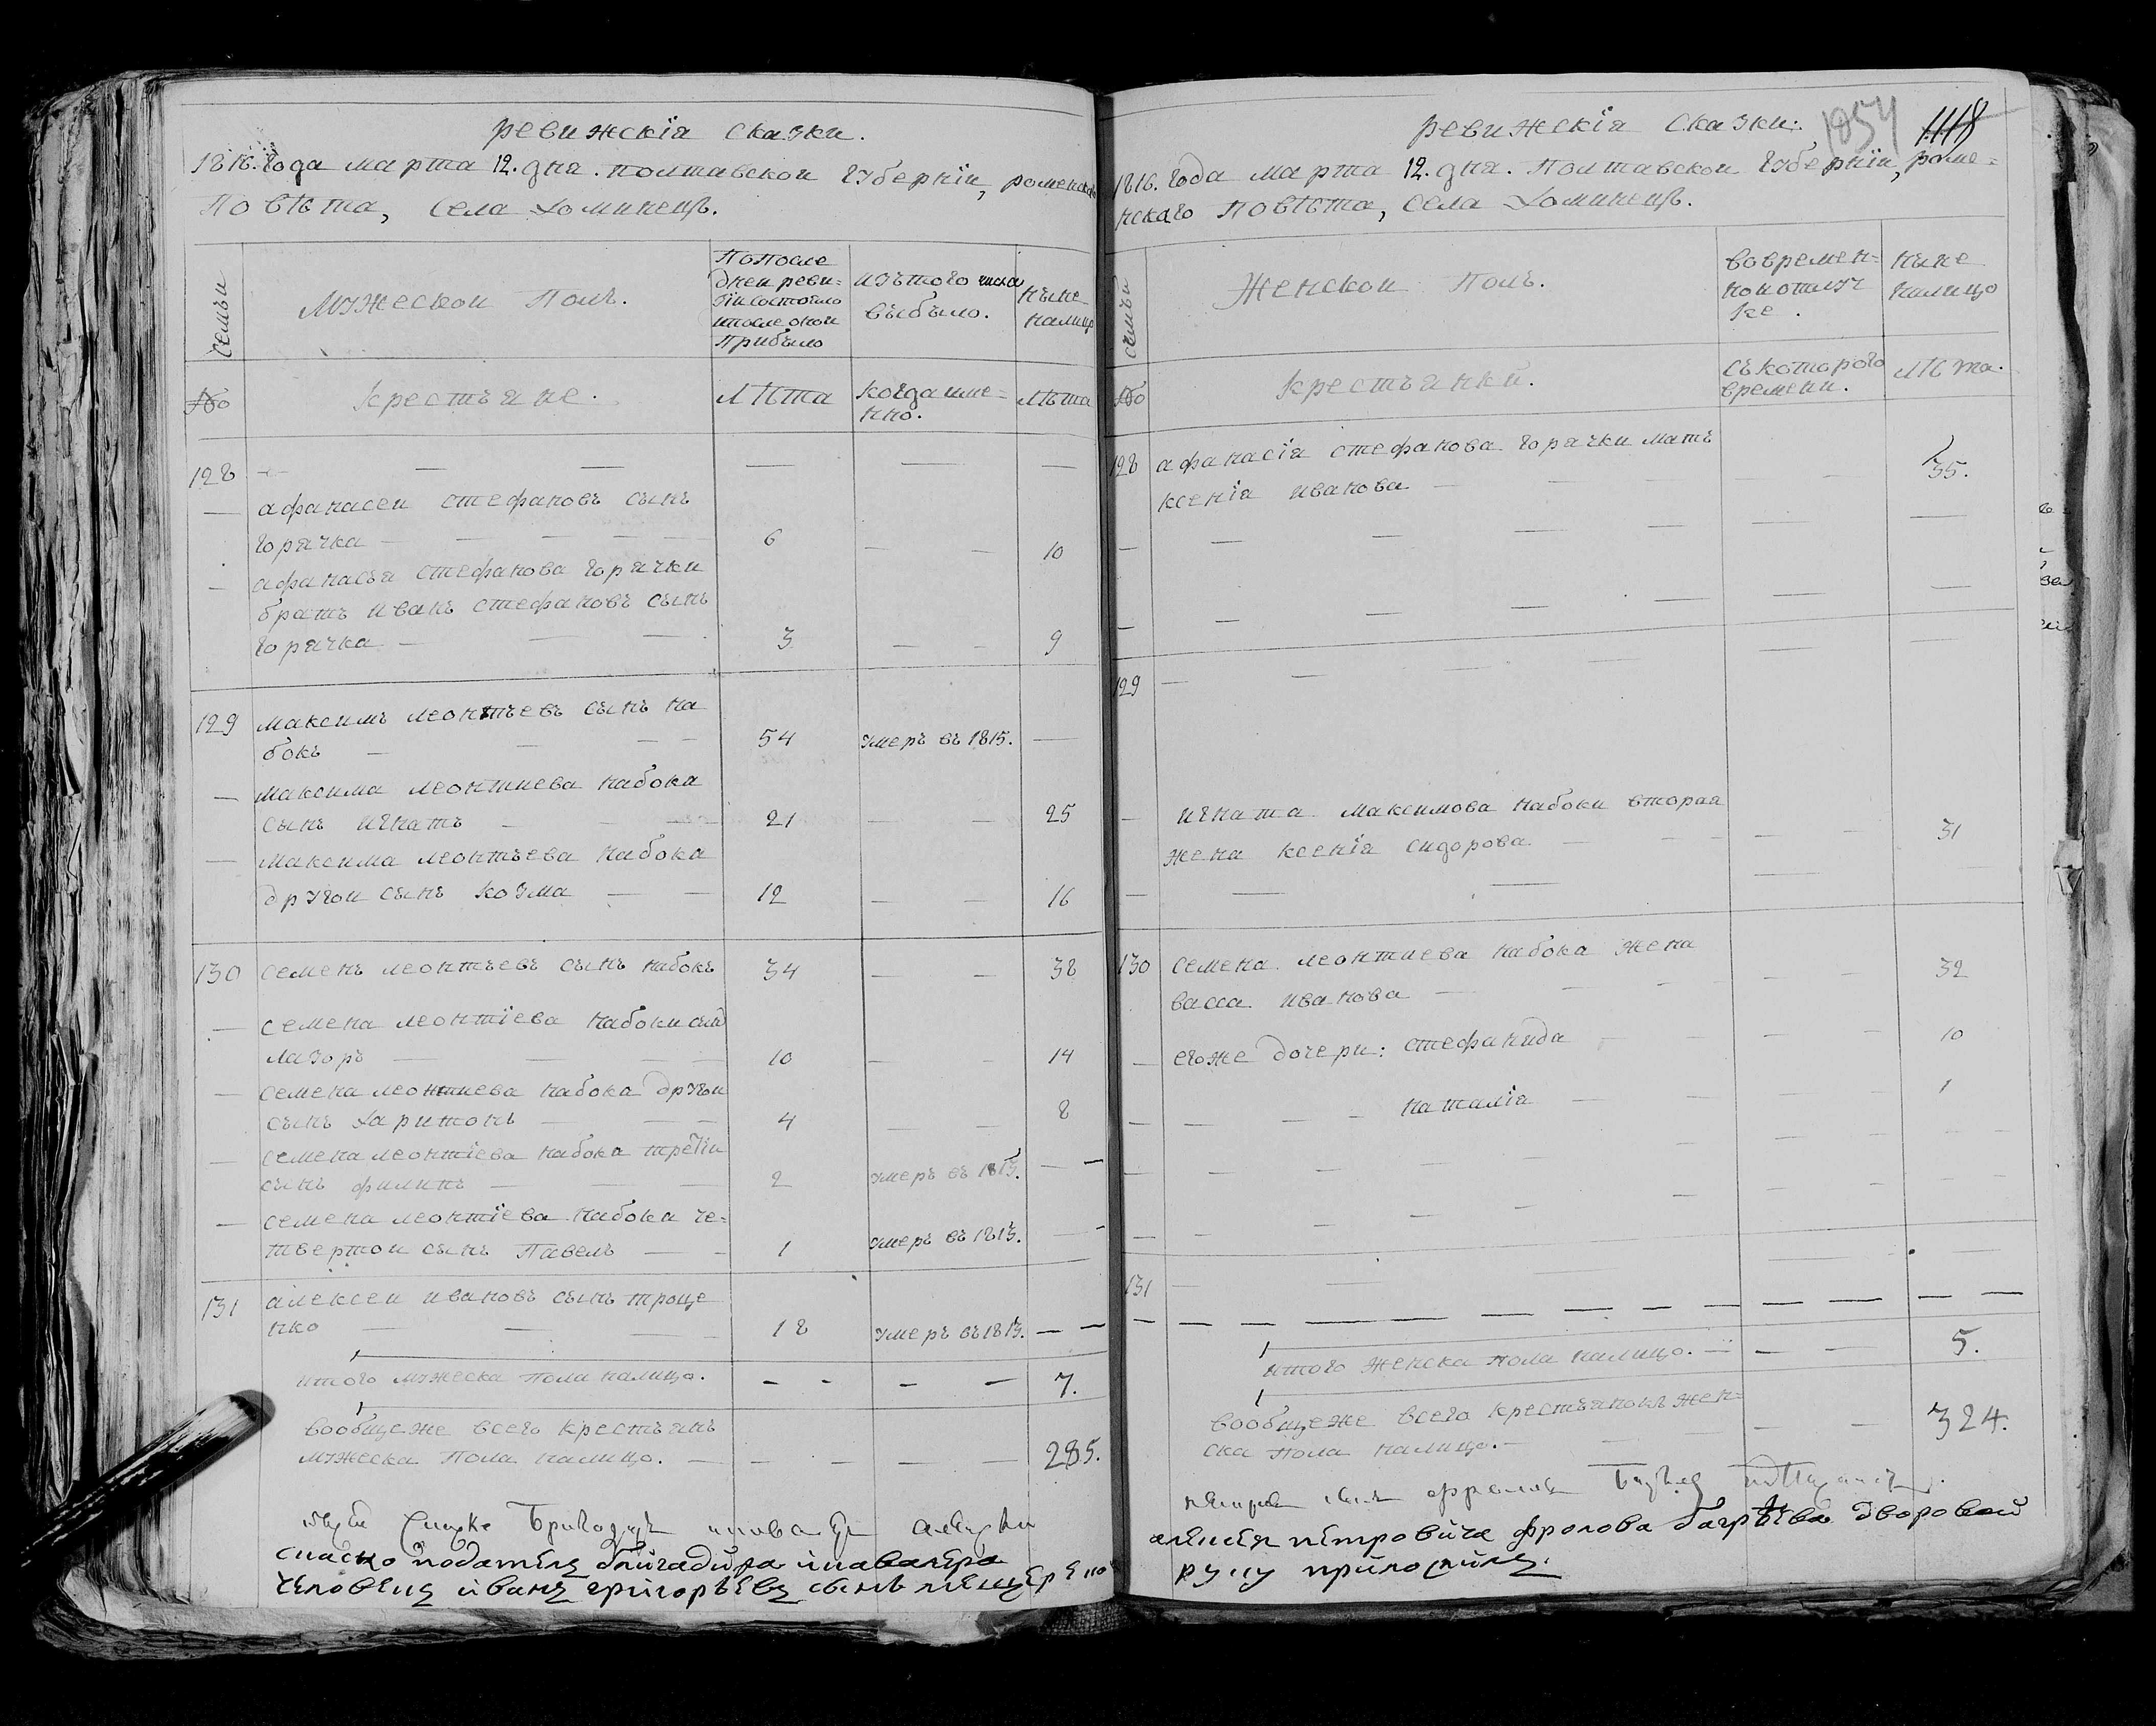 ревижскія сказки.
1816. года марта 12. дня. полтавской губерніи, роменскаго
Повѣта, села Хоминецъ.
семьи
Мужеской Полъ.
По После
дней реви=
зіи состояло
и после оной
Прибыло
изътого числа
выбыло.
ныне
налицо
№
крестьяне.
Лѣта
когда име=
нно.
лѣта
128 — — — — — —
— афанасей стефановъ сынъ
горячка — 6 — — 10
— афанасья стефанова горячки
братъ иванъ стефановъ сынъ
горячка — 3 — — 9
129 максимъ леонтьевъ сынъ на
бокъ — 54 умеръ въ 1815. —
— максима леонтиева набока
сынъ игнатъ — 21 — — 25
— максима леонтьева набока
другой сынъ козма — 12 — — 16
130 семенъ леонтьевъ сынъ набокъ 34 — — 38
— семена леонтіева набоки сынъ
лазоръ — 10 — — 14
— семена леонтиева набока другой
сынъ харитонъ — 4 — — 8
— семена леонтіева набока третіи
сынъ филипъ — 2 умеръ въ 1813. — —
— семена леонтіева набока че=
твертой сынъ Павелъ — 1 умеръ въ 1813. — -
131 алексей ивановъ сынъ троще
нко — 18 умеръ въ 1813. — —
итого мужеска пола налицо. — - — — 7.
вообщеже всего крестьянъ
мужеска Пола налицо. — — — — — 285.
скаско подателя бригадира икавалера
человекъ иванъ григорьевъ сынъ
ревижскія сказки.
1054
1118
1816. года марта 12. дня. Полтавской губерніи, роме=
нскаго Повѣта, села Хоминецъ.
семьи
Женской Полъ.
вовремен=
ной отлуч
ке.
ныне
налицо
№
крестьянки.
съ которого
времени.
лѣта.
128 афанасія стефанова горячки мать
ксенія иванова — — — — 35.
129 — — — — — —
— игната максимова набоки вторая
жена ксенія сидорова — — — 31
130 семена леонтиева набока жена
васса иванова — — — 32
— егоже дочери: стефанида — — 10
— — — наталія — — — 1
131 — — — — —
итого женска пола налицо. — — — 5.
вообщеже всего крестьянокъ жен=
ска пола налицо. — — — 324.
алексея петровича фролова багрѣева дворовой
руку приложилъ.